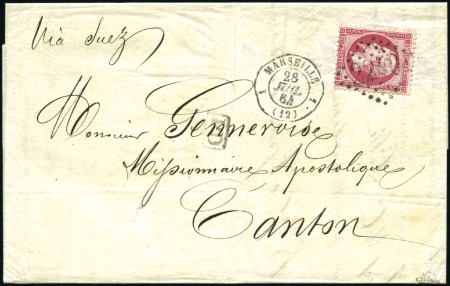 Via Suez
MARSEILLE
28
JUIL.
64
1 1
(12)
Monsieur Gennevoise
PD
Missionnaire Apostolique
Canton